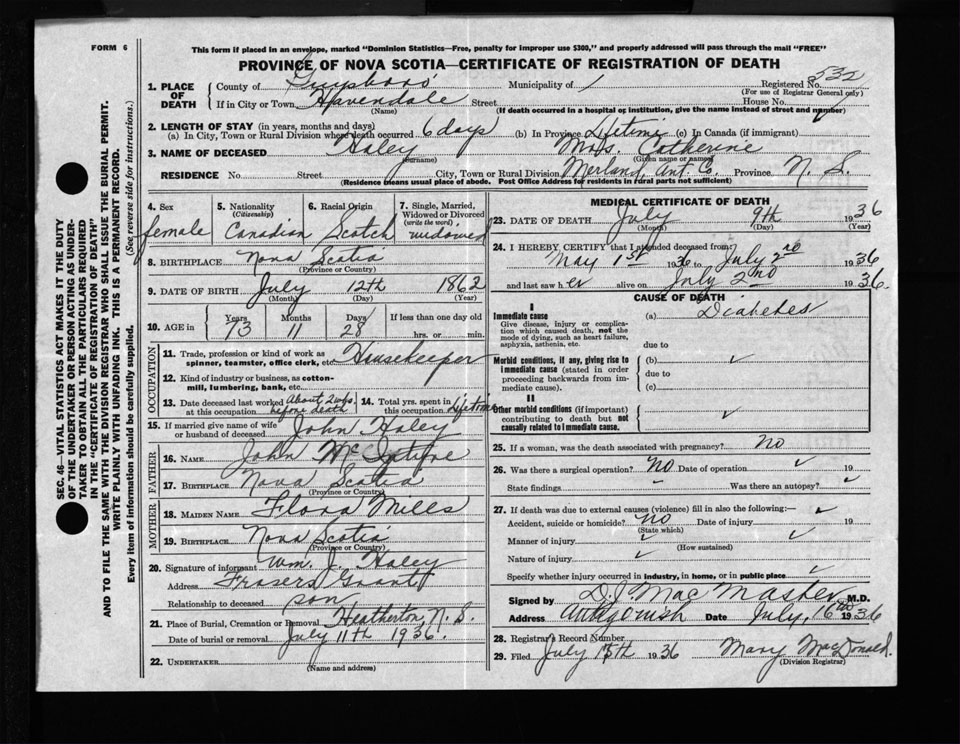 FORM 6
This form if placed in an envelope, marked "Dominion Statistics—Free, penalty for improper use $300," and properly addressed will pass through the mail "FREE"
PROVINCE OF NOVA SCOTIA—CERTIFICATE OF REGISTRATION OF DEATH
SEC. 46—VITAL STATISTICS ACT MAKES IT THE DUTY OF THE UNDERTAKER OR PERSON ACTING AS UNDERTAKER TO OBTAIN ALL THE PARTICULARS REQUIRED IN THE "CERTIFICATE OF REGISTRATION OF DEATH" AND TO FILE THE SAME WITH THE DIVISION REGISTRAR WHO SHALL ISSUE THE BURIAL PERMIT.
WRITE PLAINLY WITH UNFADING INK. THIS IS A PERMANENT RECORD.
Every item of information should be carefully supplied. (See reverse side for instructions.)
1. PLACE OF DEATH
County of Guysboro' Municipality of / Registered No. 532
(For use of Registrar General only)
If in City or Town Havendale Street House No.
(Name) (If death occurred in a hospital or institution, give the name instead of street and number)
2. LENGTH OF STAY (in years, months and days)
(a) In City, Town or Rural Division where death occurred 6 days (b) In Province Lifetime (c) In Canada (if immigrant)
3. NAME OF DECEASED Haley Mrs. Catherine
(Surname) (Given name or names)
RESIDENCE No Street City, Town or Rural Division Merland, Ant. Co. Province N. S.
(Residence means usual place of abode. Post Office Address for residents in rural parts not sufficient)
4. Sex female
5. Nationality (Citizenship) Canadian
6. Racial Origin Scotch
7. Single, Married, Widowed or Divorced (write the word) widowed
8. BIRTHPLACE Nova Scotia
(Province or Country)
9. DATE OF BIRTH July 12th 1862
(Month) (Day) (Year)
10. AGE in Years 73 Months 11 Days 28 If less than one day old hrs. or min.
OCCUPATION
11. Trade, profession or kind of work as spinner, teamster, office clerk, etc. Housekeeper
12. Kind of industry or business, as cotton-mill, lumbering, bank, etc.
13. Date deceased last worked at this occupation About 2 wks. before death
14. Total yrs. spent in this occupation lifetime
15. If married give name of wife or husband of deceased John Haley
FATHER
16. NAME John McIntyre
17. BIRTHPLACE Nova Scotia
(Province or Country)
MOTHER
18. MAIDEN NAME Flora Mills
19. BIRTHPLACE Nova Scotia
(Province or Country)
20. Signature of informant Wm. J. Haley
Address Frasers Grant
Relationship to deceased son
21. Place of Burial, Cremation or Removal Heatherton, N. S.
Date of burial or removal July 11th 1936.
22. UNDERTAKER
(Name and address)
MEDICAL CERTIFICATE OF DEATH
23. DATE OF DEATH July 9th 1936
(Month) (Day) (Year)
24. I HEREBY CERTIFY that I attended deceased from:
May 1st 1936 to July 2nd 1936
and last saw her alive on July 2nd 1936.
CAUSE OF DEATH
I
Immediate cause (a) Diabetes
Give disease, injury or complication which caused death, not the mode of dying, such as heart failure, asphyxia, asthenia, etc.
due to
Morbid conditions, if any, giving rise to immediate cause (stated in order proceeding backwards from immediate cause).
(b) ✓
due to
(c)
II
Other morbid conditions (if important) contributing to death but not causally related to immediate cause. ✓
25. If a woman, was the death associated with pregnancy? No
26. Was there a surgical operation? No Date of operation ✓ 19
State findings Was there an autopsy? ✓
27. If death was due to external causes (violence) fill in also the following:—
Accident, suicide or homicide? no Date of injury 19
(State which)
Manner of injury ✓
(How sustained)
Nature of injury ✓
Specify whether injury occurred in industry, in home, or in public place ✓
Signed by D J MacMaster M.D.
Address Antigonish Date July, 16th 1936
28. Registrar's Record Number
29. Filed July 15th 1936 Mary MacDonald.
(Division Registrar)